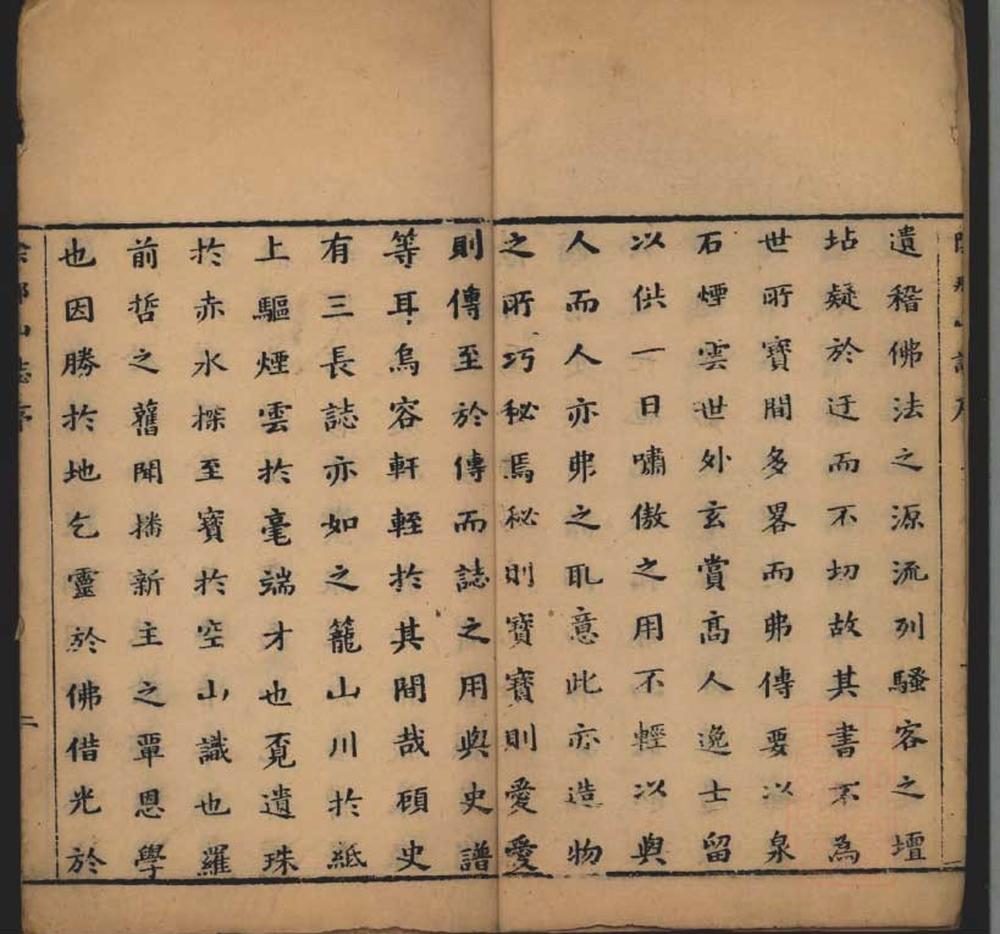 遺稽佛法之源流列騷客之壇
坫疑於迂而不切故其書不為
世所寶間多畧而弗傳要以泉
石煙雲世外玄賞高人逸士留
以供一日嘯傲之用不輕以與
人而人亦弗之耴意此亦造物
之所巧秘焉秘則寶寶則愛愛
則傳至於傳而誌之用與史譜
等耳烏容軒輊於其間哉碩史
有三長誌亦如之籠山川於紙
上驅煙雲於毫端才也覓遺珠
於赤水探至寶於空山識也羅
前哲之舊聞播新主之覃恩學
也因勝於地乞靈於佛借光於
山誌序
二